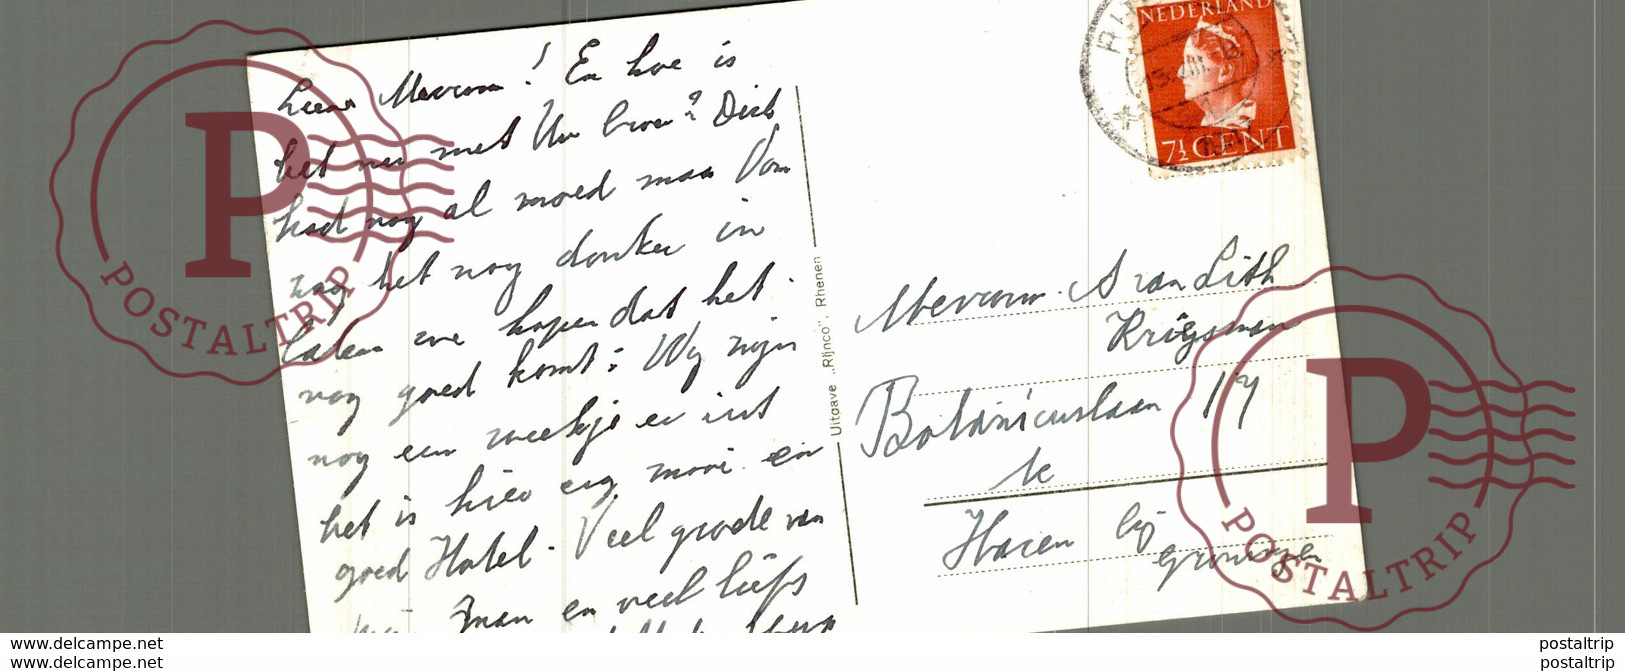 Lieve Mevrouw! En hoe is
het nu met Uw broer? Dick
had nog al moed maar Tom
zag het nog donker in
laten we hopen dat het
nog goed komt! Wij zijn
nog een weekje er uit
het is hier erg mooi en
goed Hotel. Veel groete van
mijn man en veel liefs
NEDERLAND
7½ CENT
Uitgave „Rijnco", Rhenen
Mevrouw A van Lith
Krijgsman
Botanicuslaan 14
te
Haren bij
Groningen
P
POSTALTRIP
P
POSTALTRIP
www.delcampe.net
postaltrip
www.delcampe.net
postaltrip